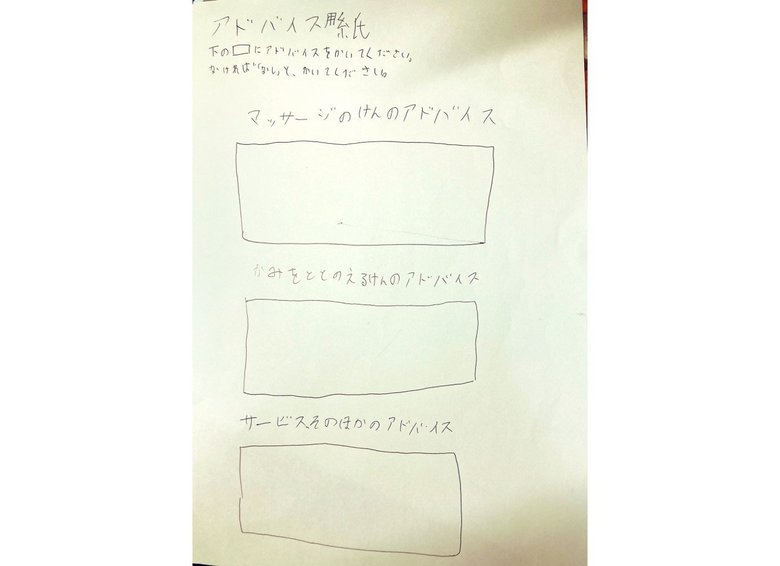 アドバイス用紙
下の□にアドバイスをかいてください。
なければ「なし」と、かいてください。
マッサージのけんのアドバイス
かみをととのえるけんのアドバイス
サービスそのほかのアドバイス